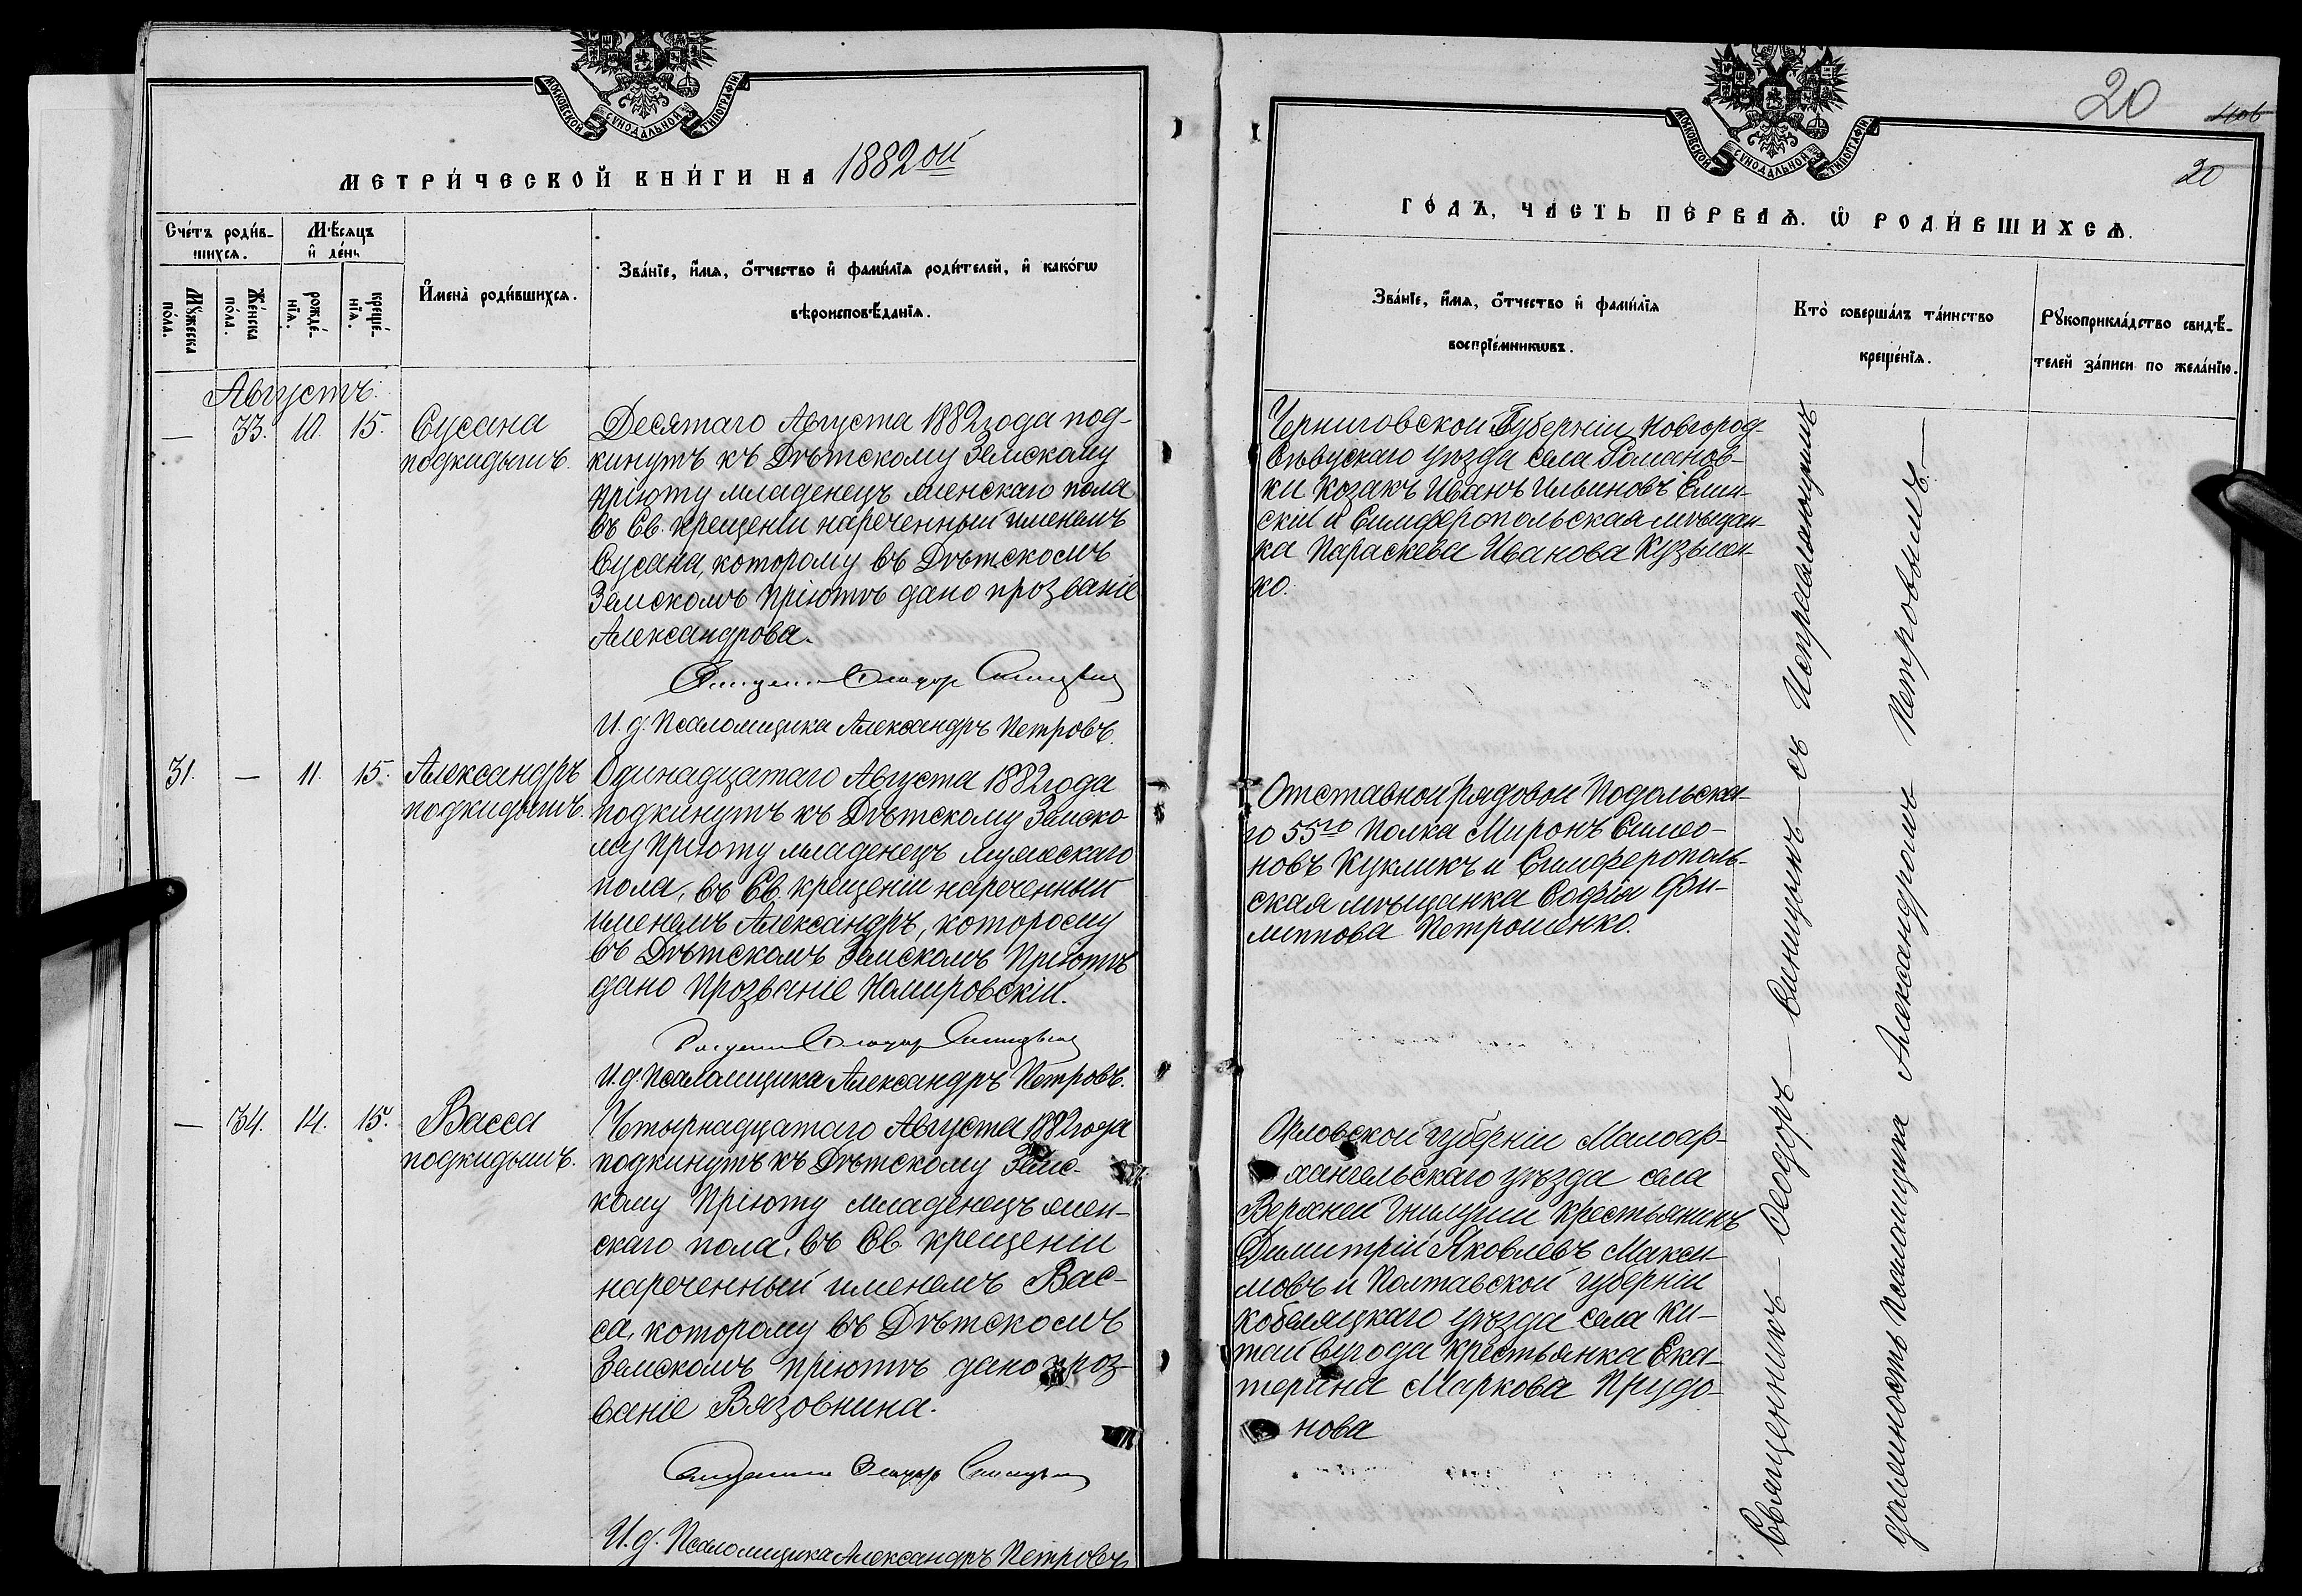 МОСКОВСКОЙ СѴНОДАЛЬНОЙ ТИПОГРАФІИ
МЕТРИ́ЧЕСКОЙ КНИ́ГИ НА 1882ой
Сче́тъ роди́в-
шихся.
Мѣ́сяцъ
и҆ де́нь
Мꙋ́жеска
по́ла.
Же́нска
пола.
рожде́-
нїѧ.
креще́-
нїѧ.
И҆мена̀ роди́вшихсѧ.
Зва́нїе, и҆́мѧ, ѻ҆́тчество и҆ фами́лїѧ роди́телей, и҆ како́гѡ
вѣроисповѣ́данїѧ.
Августъ.
— 33. 10. 15. Сусана
подкидышъ.
Десятаго Августа 1882 года под-
кинутъ къ Дѣтскому Земскому
Пріюту младенецъ женскаго пола
въ Св. крещеніи нареченный именемъ
Сусана, которому въ Дѣтскомъ
Земскомъ Пріютѣ дано прозваніе
Александрова.
И. д. Псаломщика Александръ Петровъ.
31. — 11. 15. Александръ
подкидышъ.
Одинадцатаго Августа 1882 года
подкинутъ къ Дѣтскому Земско-
му Пріюту младенецъ мужескаго
пола, въ Св. крещеніи нареченный
именемъ Александръ, которому
въ Дѣтскомъ Земскомъ Пріютѣ
дано Прозваніе
И. д. Псаломщика Александръ Петровъ.
— 34. 14. 15. Васса
подкидышъ.
Четырнадцатаго Августа 1882 года
подкинутъ къ Дѣтскому Земс-
кому Пріюту младенецъ жен-
скаго пола, въ Св. крещеніи
нареченный именемъ Вас-
са, которому въ Дѣтскомъ
Земскомъ Пріютѣ дано проз-
ваніе Вязовнина.
И. д. Псаломщика Александръ Петровъ
МОСКОВСКОЙ СѴНОДАЛЬНОЙ ТИПОГРАФІИ
20
20
ГО́ДЪ, ЧА́СТЬ ПЕ́РВАѦ. Ѽ РОДИ́ВШИХСѦ.
Зва́нїе, и҆́мѧ, ѻ҆́тчество и҆ фами́лїѧ
воспрїе́мникѡвъ.
Кто̀ соверша́лъ та́инство
креще́нїѧ.
Рꙋкоприкла́дство свидѣ́-
телей за́писи по жела́нїю.
Черниговской Губерніи Новгород-
Сѣвускаго уѣзда села Романов-
ки козакъ Иванъ Ильиновъ
и Симферопольская мѣщан-
ка Параскева Иванова Кузьмен-
ко.
Отставной рядовой Подольска-
го 55го Полка Миронъ Симео-
новъ Кукликъ и Симферополь-
ская мѣщанка Софія Фи-
липпова Петрошенко.
Орловской губерніи Малоар-
хангельскаго уѣзда села
Верхней Гнилуши крестьянинъ
Димитрій Яковлевъ Макси-
мовъ и Полтавской губерніи
Кобеляцкаго уѣзда села Ки-
тайгорода крестьянка Ека-
терина Маркова Прудо-
нова
Священникъ — Ѳеодоръ — — съ Исправляющимъ
должность Псаломщика Александромъ Петровымъ. —